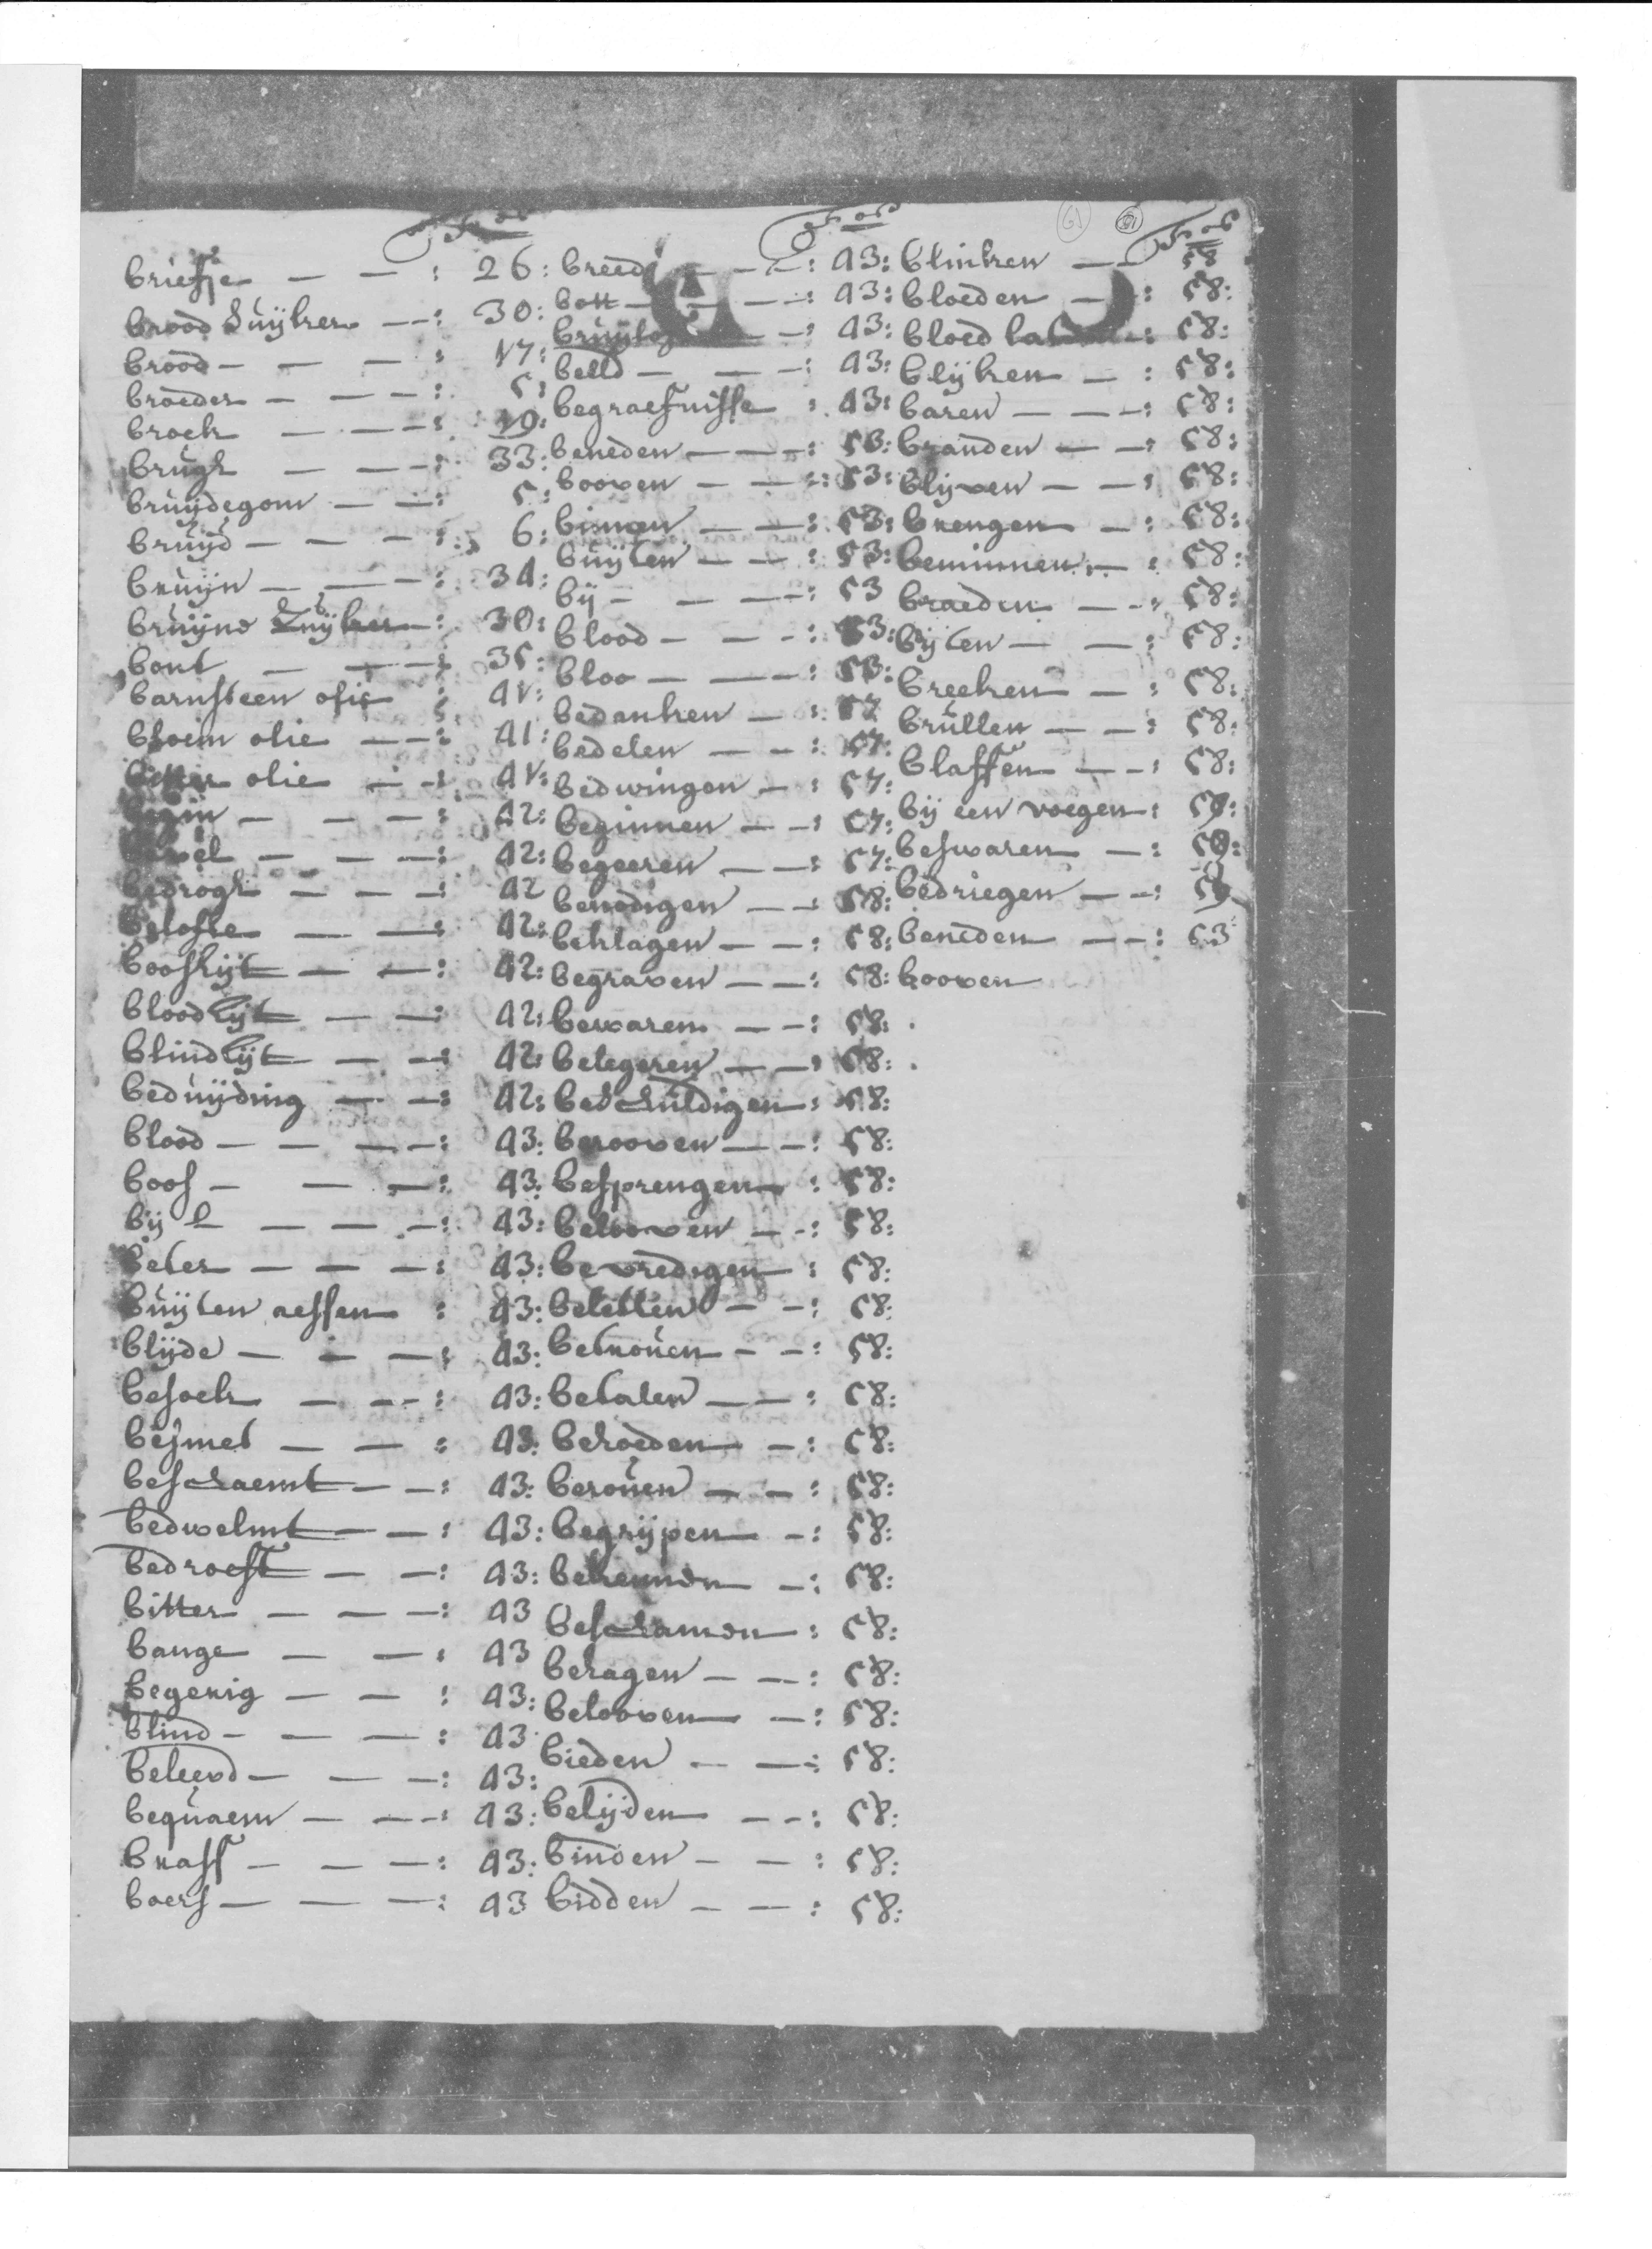 Fol
briefje — — : 26:
brood suijker — — : 30:
brood — — — : 17:
broeder — — — : 5:
broek — — — : 19:
brugh — — — : 33:
bruijdegom — — : 5:
bruijd — — — : 6:
bruijn — — — : 34:
bruijne Suijker — : 30:
bont — — — : 35:
barnsteen olie : 41:
bloem olie — — : 41:
bitter olie — — : 41:
begin — — — : 42:
bevel — — — : 42:
bedrogh — — — : 42
belofte — — : 42:
boosheijt — — : 42:
bloodheijt — — : 42:
blindheijt — — : 42:
beduijding — — : 42:
blood — — — : 43:
boos — — — : 43:
bij l — — — : 43:
beter — — — : 43:
buijten aessem : 43:
blijde — — — : 43:
besoek — — — : 43:
besmet — — : 43:
beschaemt — — : 43:
bedwelmt — — : 43:
bedroeft — — : 43:
bitter — — — : 43
bange — — : 43
begerig — — : 43:
blind — — — : 43
beleevd — — — : 43:
bequaem — — — : 43:
braff — — — : 43:
baers — — — : 43
Fol
breed — — : 43:
bott — — — : 43:
— : 43:
belld — — — : 43:
begraefnisse : 43:
beneden — — — : 53:
booven — — — : 53:
binnen — — : 53:
buijten — — : 53:
bij — — — : 53
blood — — — : 53:
bloo — — — : 53:
bedanken — : 57
bedelen — — : 57:
bedwingen — : 57:
beginnen — — : 57:
begeeren — — : 57:
benodigen — — : 58:
beklagen — — : 58:
begraven — — : 58:
bewaren — — : 58:
belegeren — — : 58:
beschuldigen : 58:
berooven — — : 58:
besprengen : 58:
belooven — — : 58:
bevredigen : 58:
beletten — — : 58:
betrouen — — : 58:
betalen — — : 58:
behoeden — : 58:
berouen — — : 58:
begrijpen — : 58:
bekennen — : 58:
beschamen : 58:
behagen — — : 58:
belooven — : 58:
bieden — — : 58:
belijden — — : 58:
binden — — : 58:
bidden — — : 58:
Fol
blinken — — 58
bloeden — : 58:
bloed laten — : 58:
blijken — : 58:
baren — — — : 58:
branden — — : 58:
blijven — — : 58:
brengen — : 58:
beminnen — : 58:
braeden — — : 58:
bijten — — : 58:
breeken — : 58:
brullen — — : 58:
blaffen — — : 58:
bij een voegen : 59:
beswaren — : 59:
bedriegen — — : 59
beneden — — : 53
booven